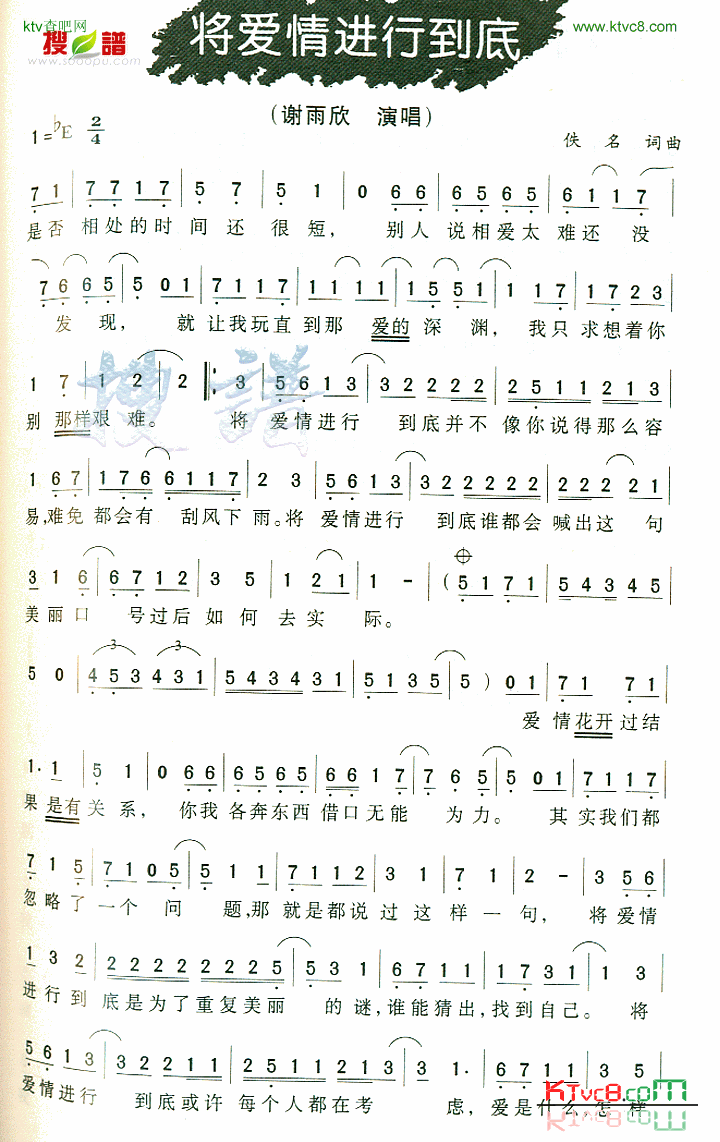 ktv查吧网
www.ktvc8.com
搜谱
www.sooopu.com
将爱情进行到底
(谢雨欣 演唱)
1=♭E 2/4
佚名 词曲
7 1 | 7 7 1 7 | 5 7 | 5 1 | 0 6 6 | 6 5 6 5 | 6 1 1 7 |
是否 相处的时 间 还 很 短, 别人 说相爱太 难还 没
7 6 6 5 | 5 0 1 | 7 1 1 7 | 1 1 1 1 | 1 5 5 1 | 1 1 7 | 1 7 2 3 |
发 现, 就 让我玩直 到那 爱的 深 渊, 我只 求想着你
1 7 | 1 2 | 2 ‖: 3 | 5 6 1 3 | 3 2 2 2 2 | 2 5 1 1 2 1 3 |
别 那样艰 难。 将 爱情进行 到底并不 像你说得那么容
1 6 7 | 1 7 6 6 1 1 7 | 2 3 | 5 6 1 3 | 3 2 2 2 2 2 | 2 2 2 2 | 2 2 1 |
易,难免 都会有 刮风下 雨。将 爱情进行 到底谁都会 喊出这 句
3 1 6 | 6 7 1 2 | 3 5 | 1 2 1 | 1 - | ( 5 1 7 1 | 5 4 3 4 5 |
美丽口 号过后 如何 去实 际。
5 0 | 4 5 3 4 3 1 | 5 4 3 4 3 1 | 5 1 3 5 | 5 ) 0 1 | 7 1 7 1 |
3 3
爱 情花开 过结
1· 1 | 5 1 | 0 6 6 | 6 5 6 5 | 6 6 1 7 | 7 6 5 | 5 0 1 | 7 1 1 7 |
果 是有 关 系, 你我 各奔东西 借口无能 为 力。 其 实我们都
7 1 5 | 7 1 0 5 | 5 1 1 | 7 1 1 2 | 3 1 | 7 1 | 2 - | 3 5 6 |
忽略了 一个 问 题,那 就是都说 过 这 样 一 句, 将 爱情
1 3 2 | 2 2 2 2 2 2 2 5 | 5 3 1 | 6 7 1 1 | 1 7 3 1 | 1 3 |
进行到 底是为了重复美丽 的谜,谁能猜出,找到自己。 将
5 6 1 3 | 3 2 2 1 1 | 2 5 1 1 2 1 3 | 3 2 | 1· | 6 7 1 1 | 3 5
爱情进行 到底或许 每个人都在考 虑,爱是什么,怎样
KTvc8.com